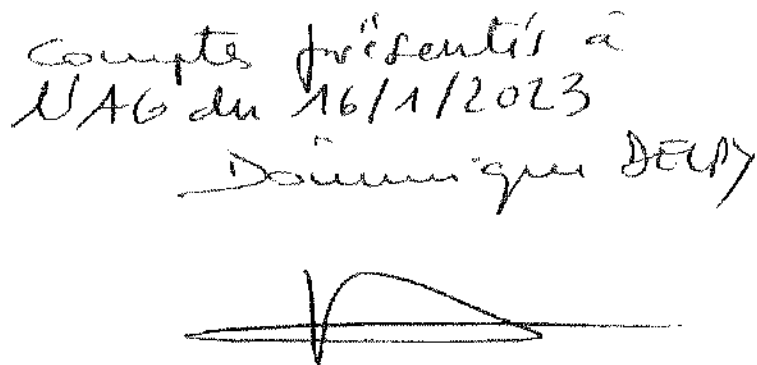 Comptes présentés à
l'AG du 16/1/2023
Dominique DELPY